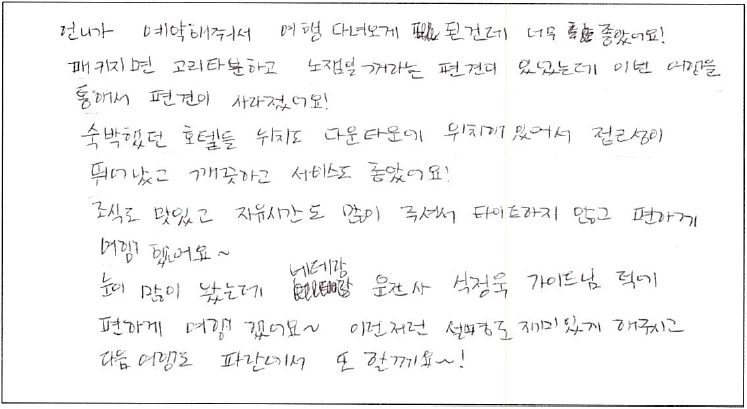 언니가 예약해줘서 여행 다녀오게 된건데 너무 좋았어요!
패키지면 고리타분하고 노잼일꺼라는 편견이 있었는데 이번 여행을
통해서 편견이 사라졌어요!
숙박했던 호텔들 위치도 다운타운에 위치해있어서 접근성이
뛰어났고 깨끗하고 서비스도 좋았어요!
조식도 맛있고 자유시간도 많이 주셔서 타이트하지 않고 편하게
여행했어요~
눈이 많이 왔는데 네테랑 운전사 석정욱 가이드님 덕에
편하게 여행했어요~ 이런저런 설명도 재미있게 해주시고
다음 여행도 파란에서 또 할께요~!